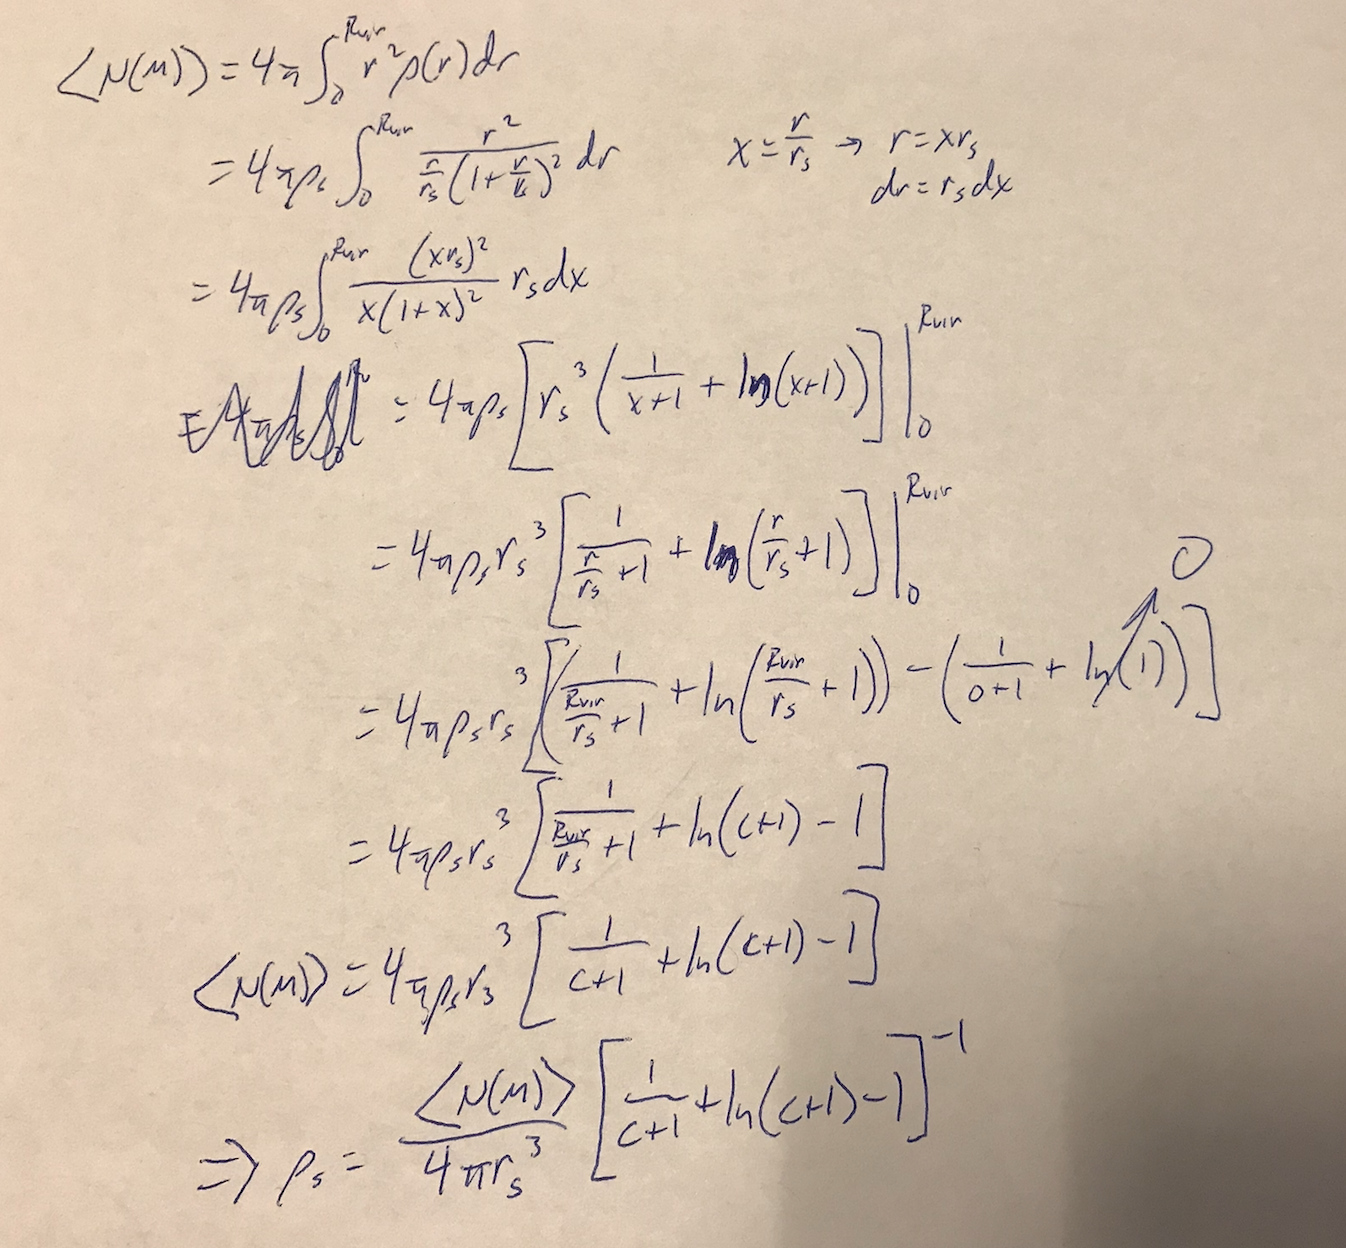 ⟨N(M)⟩ = 4π ∫₀^{Rvir} r² ρ(r) dr
= 4πρₛ ∫₀^{Rvir} r² / ( r/rₛ (1 + r/rₛ)² ) dr    x = r/rₛ → r = xrₛ
dr = rₛdx
= 4πρₛ ∫₀^{Rvir} (xrₛ)² / ( x(1+x)² ) rₛdx
= 4πρₛ [ rₛ³ ( 1/(x+1) + ln(x+1) ) ] |₀^{Rvir}
= 4πρₛrₛ³ [ 1/( r/rₛ + 1 ) + ln( r/rₛ + 1 ) ] |₀^{Rvir}
= 4πρₛrₛ³ [ ( 1/( Rvir/rₛ + 1 ) + ln( Rvir/rₛ + 1 ) ) − ( 1/(0+1) + ln(1) ) ] 0
= 4πρₛrₛ³ [ 1/( Rvir/rₛ + 1 ) + ln(c+1) − 1 ]
⟨N(M)⟩ = 4πρₛrₛ³ [ 1/(c+1) + ln(c+1) − 1 ]
⇒ ρₛ = ⟨N(M)⟩ / 4πrₛ³ [ 1/(c+1) + ln(c+1) − 1 ]⁻¹